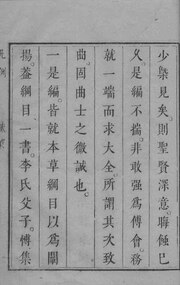 少槩見矣則聖賢深意晦蝕已
久是編不揣非敢强為傅會務
就一端而求大全所謂其次致
曲固曲士之微誠也
一是編皆就本草綱目以為闡
揚葢綱目一書李氏父子慱集